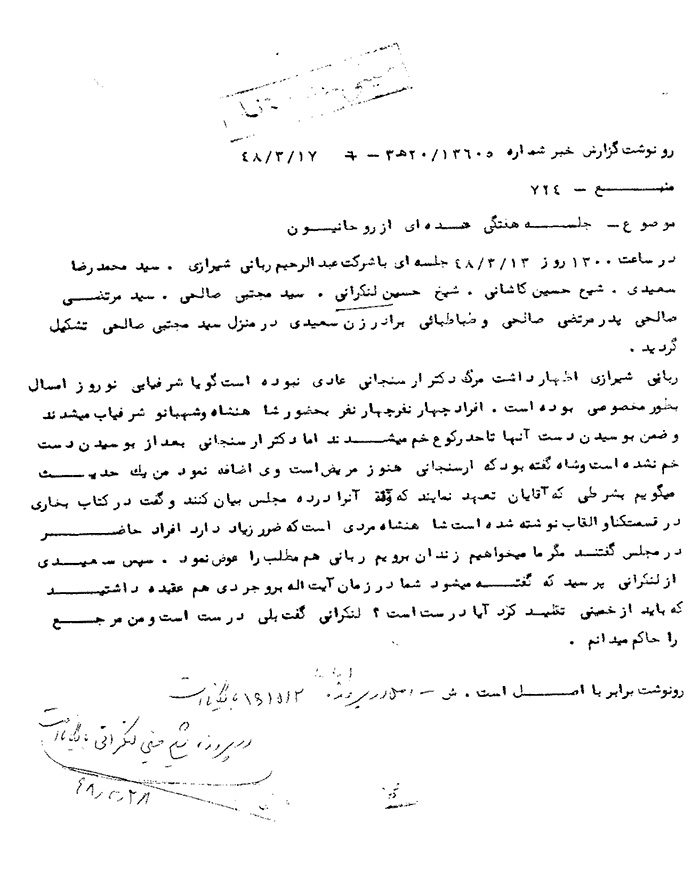 رونوشت گزارش خبر شماره ۲۰/۱۳۶۰۵ه۳ – ۴۸/۳/۱۷
منبـــع – ۷۲۴
موضوع – جلسه هفتگی عده ای از روحانیون
در ساعت ۱۳۰۰ روز ۴۸/۳/۱۳ جلسه ای با شرکت عبدالرحیم ربانی شیرازی . سید محمد رضا
سعیدی . شیخ حسین کاشانی . شیخ حسین لنکرانی . سید مجتبی صالحی . سید مرتضی
صالحی پدر مرتضی صالحی و طباطبائی برادر زن سعیدی در منزل سید مجتبی صالحی تشکیل
گردید .
ربانی شیرازی اظهار داشت مرگ دکتر ارسنجانی عادی نبوده است گویا شرفیابی نوروز امسال
بطور مخصوصی بوده است . افراد چهار نفر چهار نفر بحضور شاهنشاه و شهبانو شرفیاب میشدند
و ضمن بوسیدن دست آنها تا حد رکوع خم میشدند اما دکتر ارسنجانی بعد از بوسیدن دست
خم نشده است و شاه گفته بود که ارسنجانی هنوز مریض است وی اضافه نمود من یك حدیث
میگویم بشرطی که آقایان تعهد نمایند که آنرا در ده مجلس بیان کنند و گفت در کتاب بخاری
در قسمت کنا و القاب نوشته شده است شاهنشاه مردی است که ضرر زیاد دارد افراد حاضر
در مجلس گفتند مگر ما میخواهیم زندان برویم ربانی هم مطلب را عوض نمود . سپس سعیدی
از لنکرانی پرسید که گفته میشود شما در زمان آیت اله بروجردی هم عقیده داشتید
که باید از خمینی تقلید کرد آیا درست است ؟ لنکرانی گفت بلی درست است و من مرجع
را حاکم میدانم .
رونوشت برابر با اصل است . ش – اصل در پرونده ۱۹۱۵۱۲ بایگانی است
در پرونده شیخ حسین لنکرانی بایگانی است